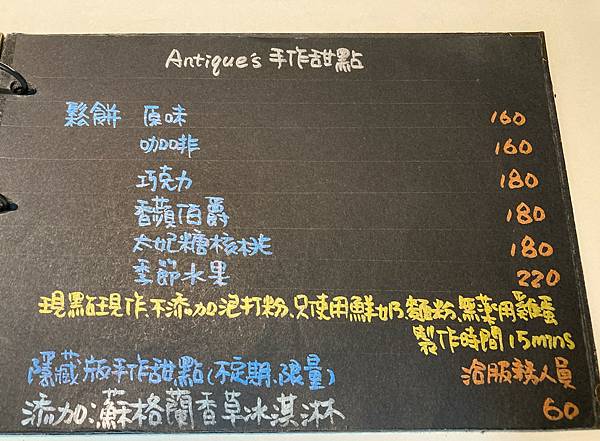 Antique's 手作甜點
鬆餅 原味 160
咖啡 160
巧克力 180
香蘋伯爵 180
太妃糖核桃 180
季節水果 220
現點現作、不添加泡打粉、只使用鮮奶、麵粉、無藥用雞蛋
製作時間15mins
隱藏版手作甜點(不定期、限量) 洽服務人員
添加:蘇格蘭香草冰淇淋 60